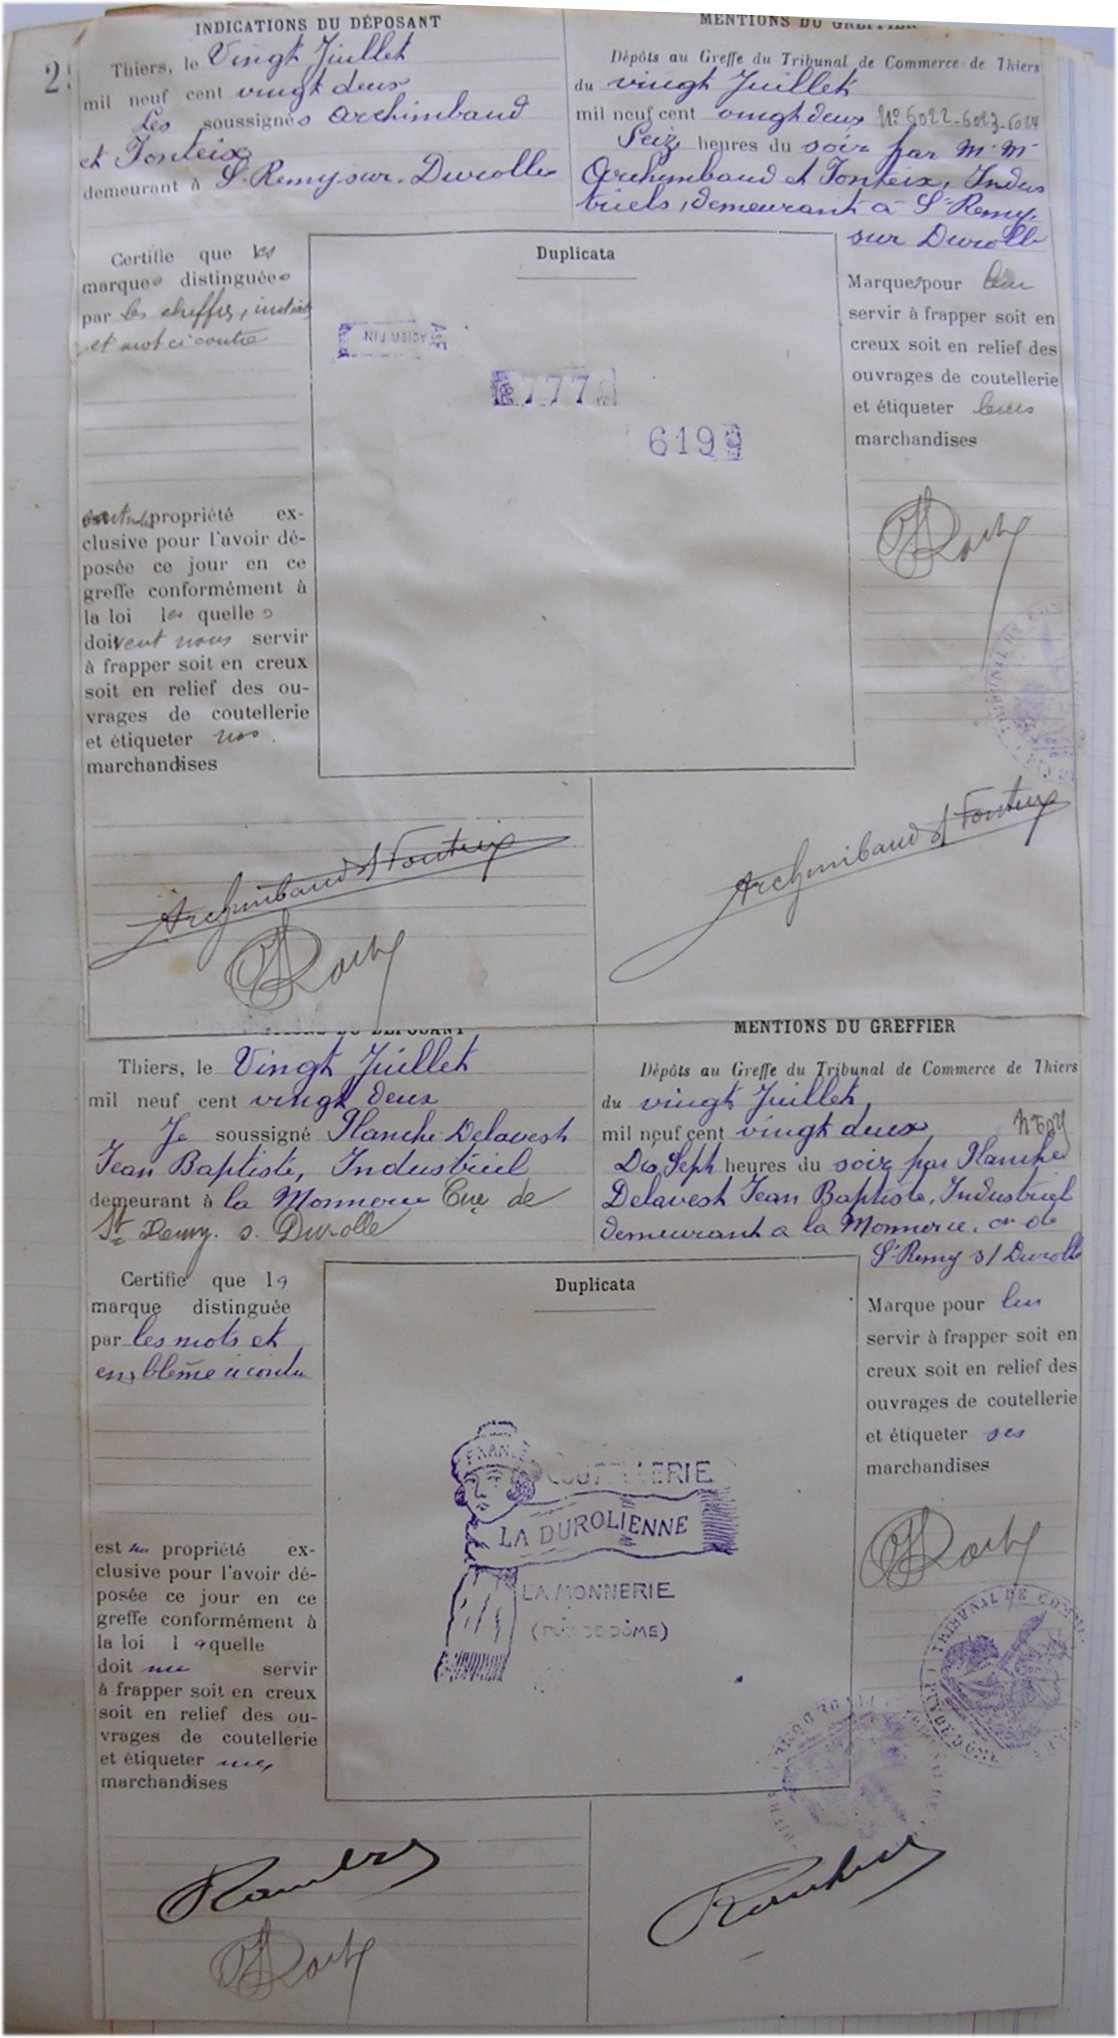 INDICATIONS DU DÉPOSANT
Thiers, le Vingt Juillet
mil neuf cent vingt deux
Les soussignés Archimbaud
et Fonteix
demeurant à St Remy sur Durolle
Certifie que les
marques distinguées
par les chiffres, initiales
et mot ci contre
propriété ex-
clusive pour l'avoir dé-
posée ce jour en ce
greffe conformément à
la loi les quelles
doivent nous servir
à frapper soit en creux
soit en relief des ou-
vrages de coutellerie
et étiqueter nos
marchandises
MENTIONS DU GREFFIER
Dépôts au Greffe du Tribunal de Commerce de Thiers
du vingt Juillet
mil neuf cent vingt deux No 6022-6023-6024
Seize heures du soir par M. M.
Archimbaud et Fonteix, Indus
triels, demeurant à St Remy
sur Durolle
Duplicata
ACIER FIN
777
6199
Marques pour leur
servir à frapper soit en
creux soit en relief des
ouvrages de coutellerie
et étiqueter leurs
marchandises
TRIBUNAL DE
Archimbaud & Fonteix
Archimbaud & Fonteix
DU DÉPOSANT
Thiers, le Vingt Juillet
mil neuf cent vingt deux
Je soussigné Planche Delavest
Jean Baptiste, Industriel
demeurant à la Monnerie Cne de
St Remy s. Durolle
Certifie que la
marque distinguée
par les mots et
emblême ci contre
est ma propriété ex-
clusive pour l'avoir dé-
posée ce jour en ce
greffe conformément à
la loi laquelle
doit me servir
à frapper soit en creux
soit en relief des ou-
vrages de coutellerie
et étiqueter mes
marchandises
MENTIONS DU GREFFIER
Dépôts au Greffe du Tribunal de Commerce de Thiers
du vingt Juillet
mil neuf cent vingt deux
Dix Sept heures du soir par Planche
Delavest Jean Baptiste, Industriel
demeurant à la Monnerie, cn de
St Remy s/ Durolle
Duplicata
FRANCE
COUTELLERIE
LA DUROLIENNE
LA MONNERIE
(PUY DE DÔME)
Marque pour lui
servir à frapper soit en
creux soit en relief des
ouvrages de coutellerie
et étiqueter ses
marchandises
TRIBUNAL DE COMMERCE